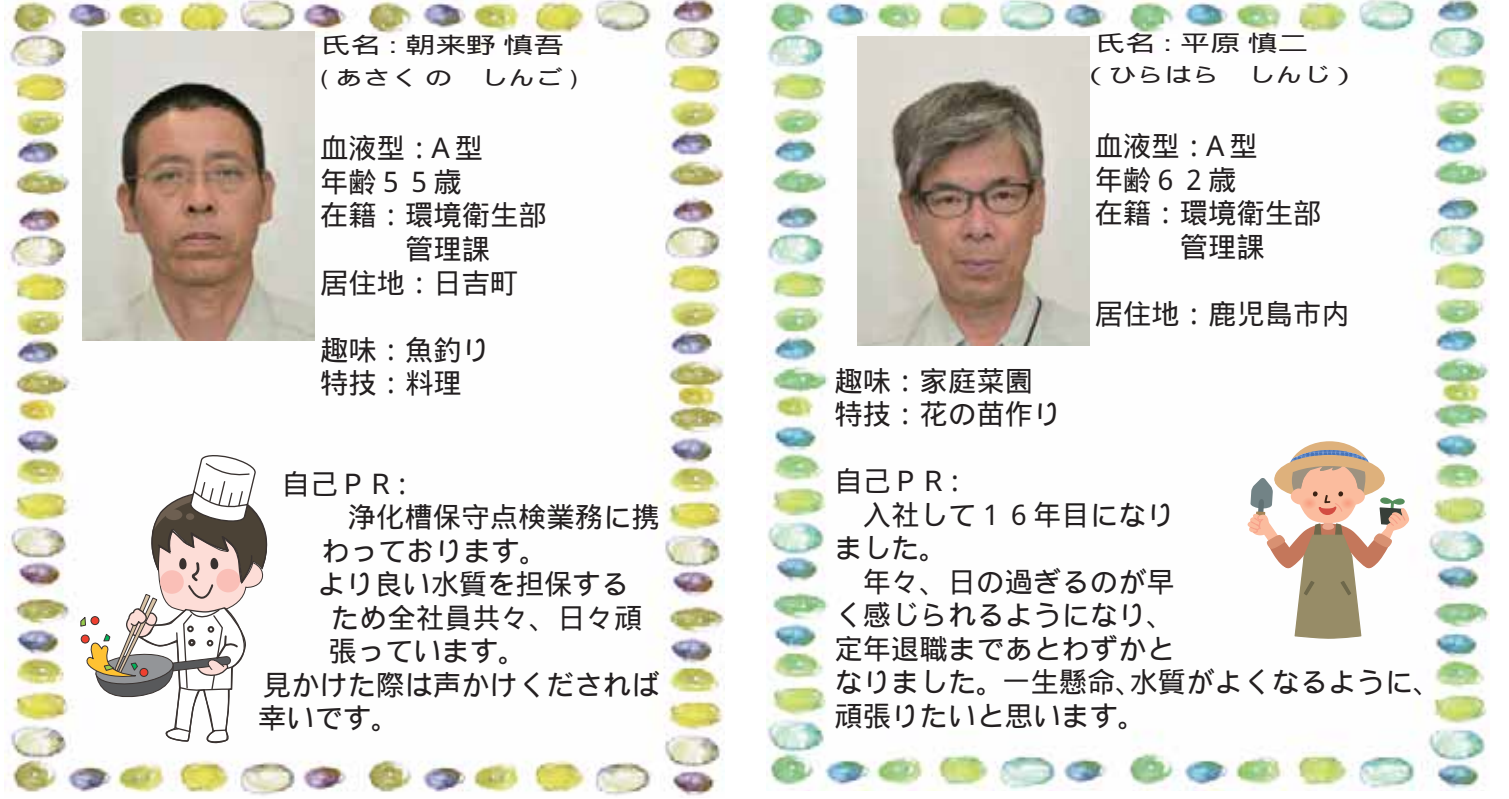 氏名：朝来野 慎吾
(あさくの　しんご)
血液型：A型
年齢５５歳
在籍：環境衛生部
管理課
居住地：日吉町
趣味：魚釣り
特技：料理
自己ＰＲ：
浄化槽保守点検業務に携
わっております。
より良い水質を担保する
ため全社員共々、日々頑
張っています。
見かけた際は声かけくだされば
幸いです。
氏名：平原 慎二
(ひらはら　しんじ)
血液型：A型
年齢６２歳
在籍：環境衛生部
管理課
居住地：鹿児島市内
趣味：家庭菜園
特技：花の苗作り
自己ＰＲ：
入社して１６年目になり
ました。
年々、日の過ぎるのが早
く感じられるようになり、
定年退職まであとわずかと
なりました。一生懸命、水質がよくなるように、
頑張りたいと思います。